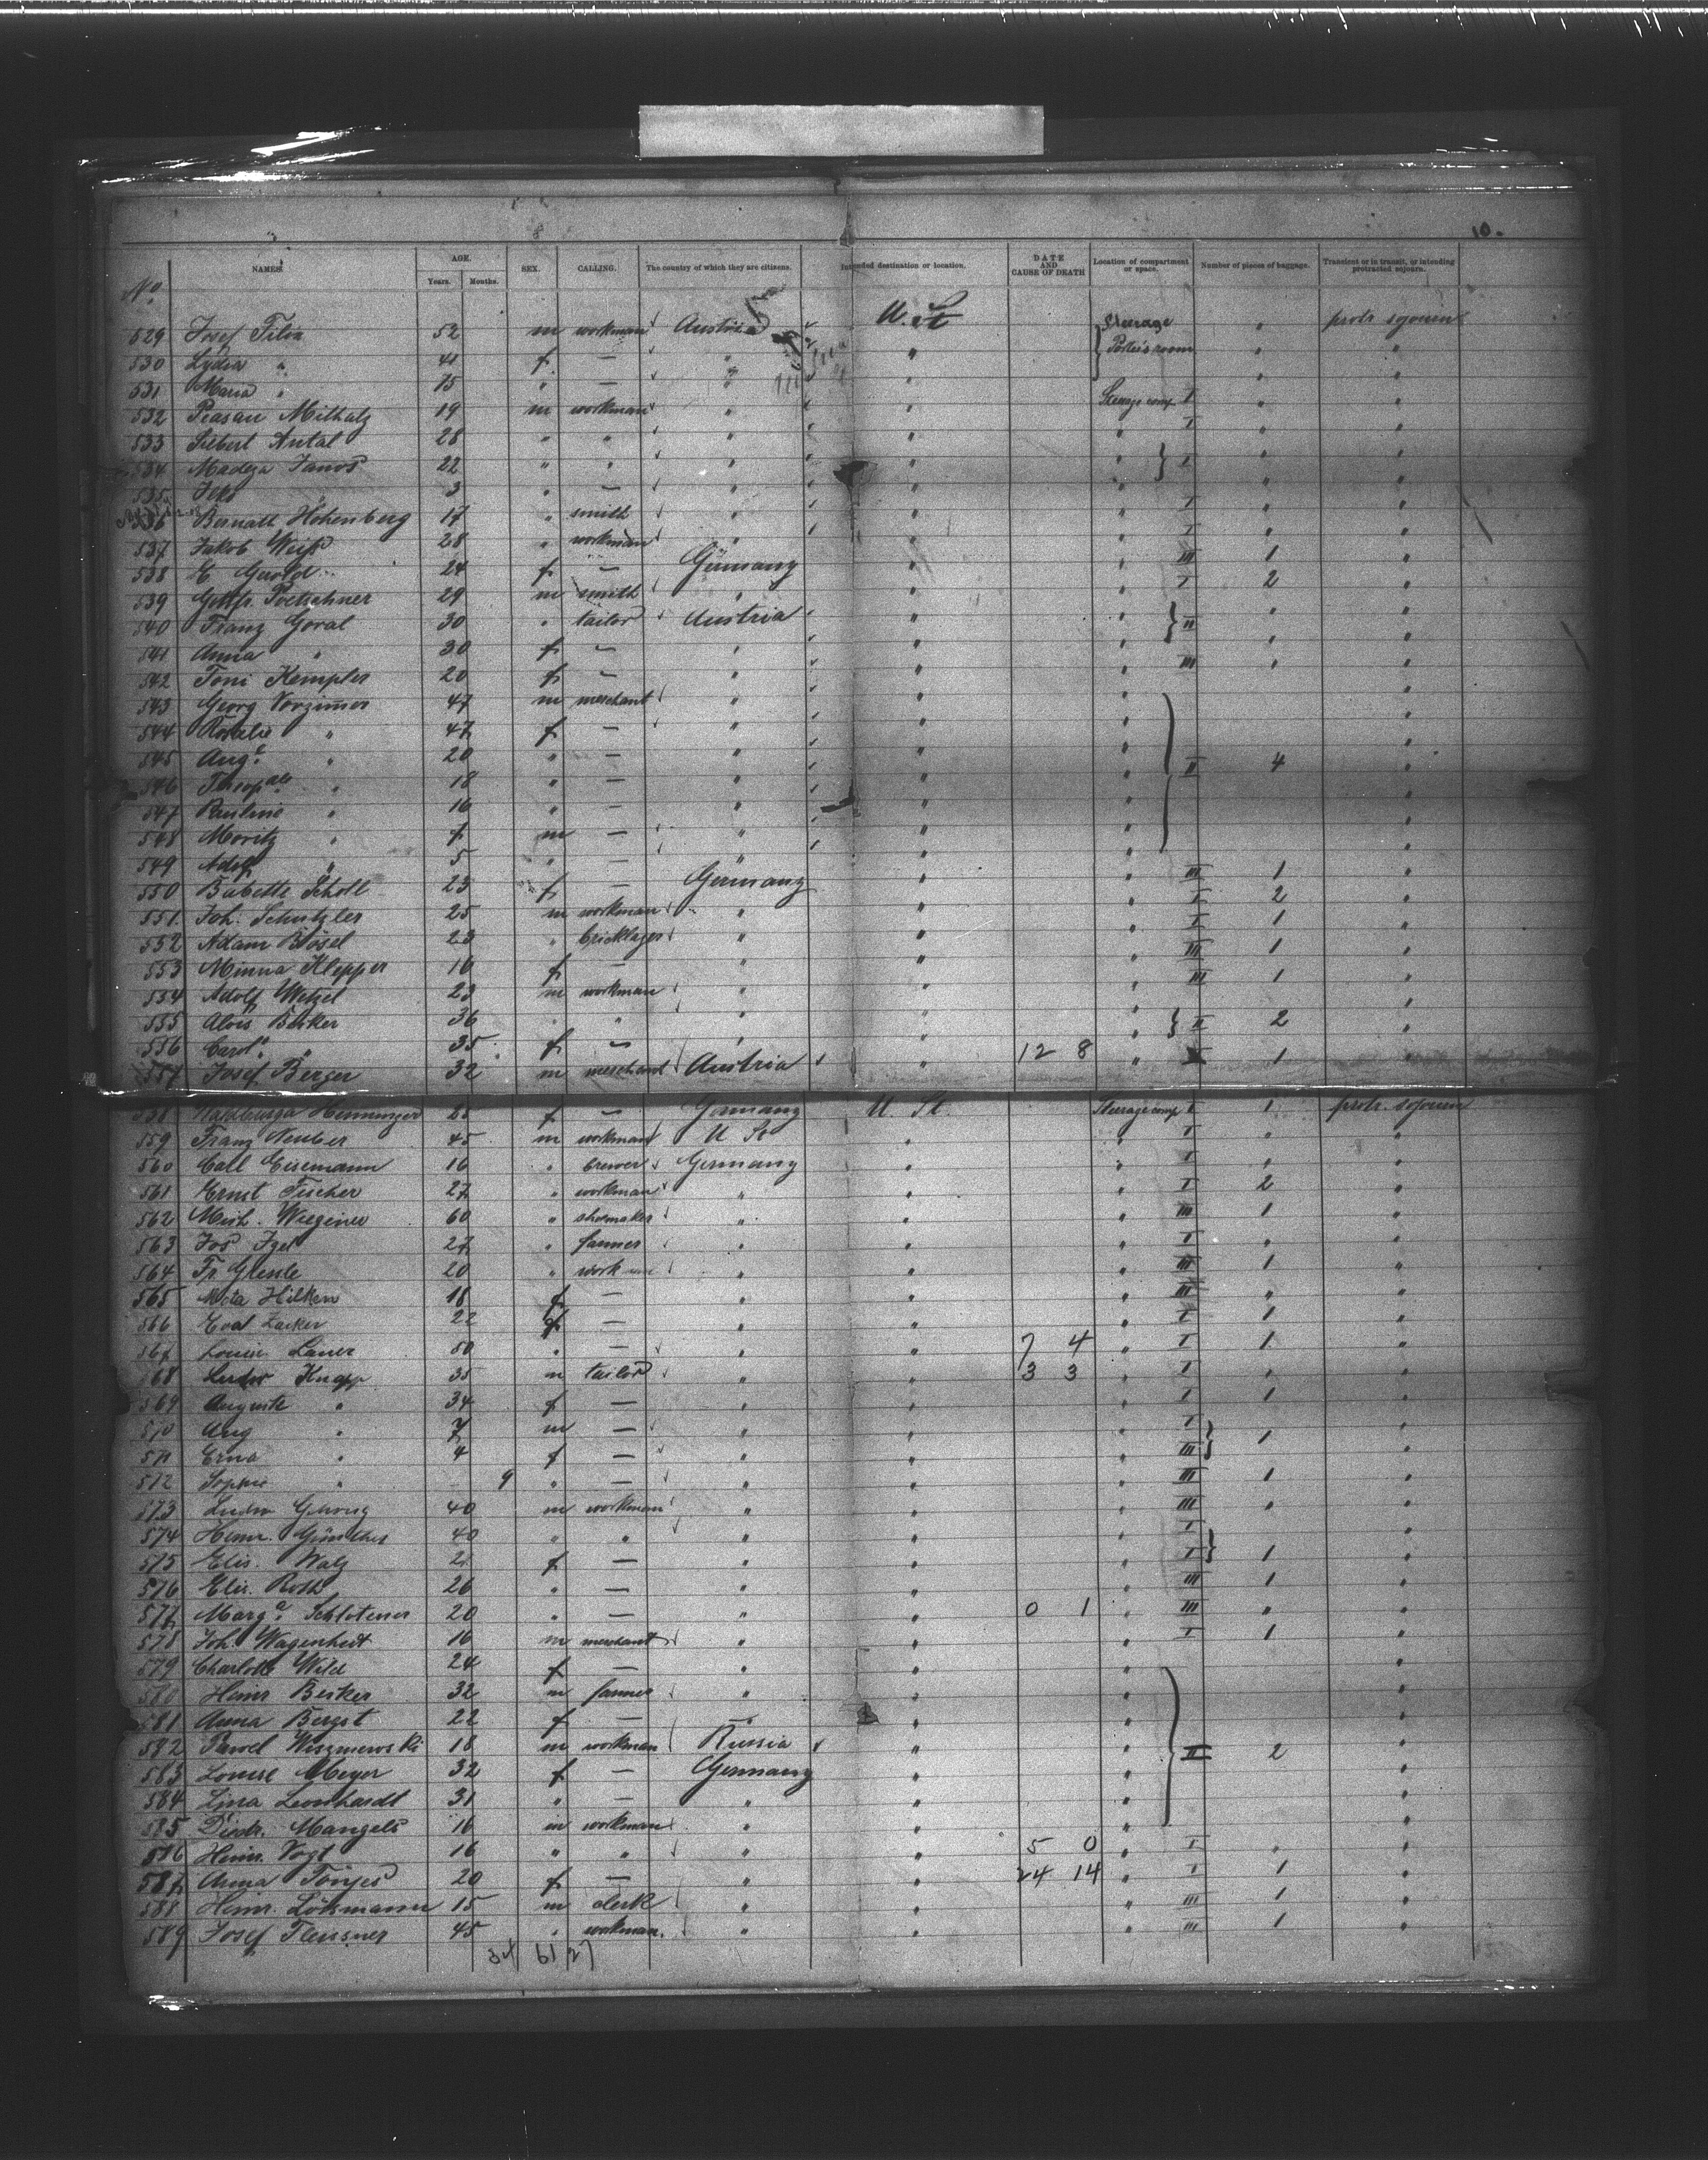 10.
No. NAMES. AGE. Years. Months. SEX. CALLING. The country of which they are citizens. Intended destination or location. DATE AND CAUSE OF DEATH Location of compartment or space. Number of pieces of baggage. Transient or in transit, or intending protracted sojourn.
529 Josef 52 m workman Austria U. St. Steerage " protr. sojourn
530 Lydia " 41 f — " " " "
531 Maria " 75 " — " " " "
532 Milhaly 19 m workman " " Steerage comp. I " "
533 Siebert Antal 28 " " " " " I " "
534 Janos 22 " " " " " I " "
535 3 " — " " " " "
536 Bernatt Hohenberg 17 " smith " " " I " "
537 Jakob Weiss 28 " workman " " " I " "
538 24 f — Germany " " III 1 "
539 Gottfr. Poetschner 29 m smith " " " I 2 "
540 Franz Goral 30 " tailor Austria " " II " "
541 Anna " 30 f — " " " " "
542 Toni Kempler 20 f — " " " III " "
543 Georg Vorzimmer 47 m merchant " " " "
544 Rosalie " 47 f — " " " "
545 Auga. " 20 " — " " " "
546 " 18 " — " " " II 4 "
547 Pauline " 16 " — " " " "
548 Moritz " 7 m — " " " "
549 Adolf " 5 " — " " " "
550 Babette Scholl 23 f — Germany " " III 1 "
551 Joh. Schutzler 25 m workman " " " I 2 "
552 Adam Bösel 23 " bricklayer " " " I 1 "
553 Minna Klepper 16 f — " " " III 1 "
554 Adolf Wetzel 23 m workman " " " III 1 "
555 Alois Becker 36 " " " " " II 2 "
556 Carola. " 35 f — " " " "
557 Josef Berger 32 m merchant Austria " 12 8 " I 1 "
558 f — Germany U. St. Steerage comp I 1 protr. sojourn
559 Franz Neuber 45 m workman U St " " I " "
560 Carl Eisemann 16 " brewer Germany " " I " "
561 Ernst Fischer 27 " workman " " " I 2 "
562 Mich. 60 " shoemaker " " " III 1 "
563 Jos Igel 27 " farmer " " " I " "
564 Fr. 20 " workman " " " III 1 "
565 Meta Hilken 18 f — " " " III " "
566 Eva Zacker 22 f — " " " I 1 "
567 Louise Lauer 50 " — " " 7 4 " I 1 "
568 Ludw Knapp 35 m tailor " " 3 3 " I " "
569 Auguste " 34 f — " " " I 1 "
570 Aug " 7 m — " " " I 1 "
571 Erna " 4 f — " " " III "
572 Sophie " — 9 " — " " " III 1 "
573 Ludw Gehrig 40 m workman " " " III " "
574 Heinr. Günther 40 " " " " " I "
575 Elis. Walz f — " " " I 1 "
576 Elis. Roth 26 " — " " " III 1 "
577 Marga. 20 " — " " 0 1 " III " "
578 Joh. Wagenheit 16 m merchant " " " I 1 "
579 Charlotte Wild 24 f — " " " "
580 Heinr Becker 32 m farmer " " " "
581 Anna Bergst 22 f — " " " "
582 Pawel Wiszniewski 18 m workman Russia " " II 2 "
583 Louise Meyer 32 f — Germany " " "
584 Lina Leonhardt 31 " — " " " "
585 Diedr. Mangels 16 m workman " " " "
586 Heinr. Vogt 16 " " " " 5 0 " I " "
587 Anna Tönjes 20 f — " " 24 14 " I 1 "
588 Heinr. Lökmann 15 m clerk " " " III 1 "
589 Josef Fleissner 45 " workman. " " " III 1 "
34 61 27